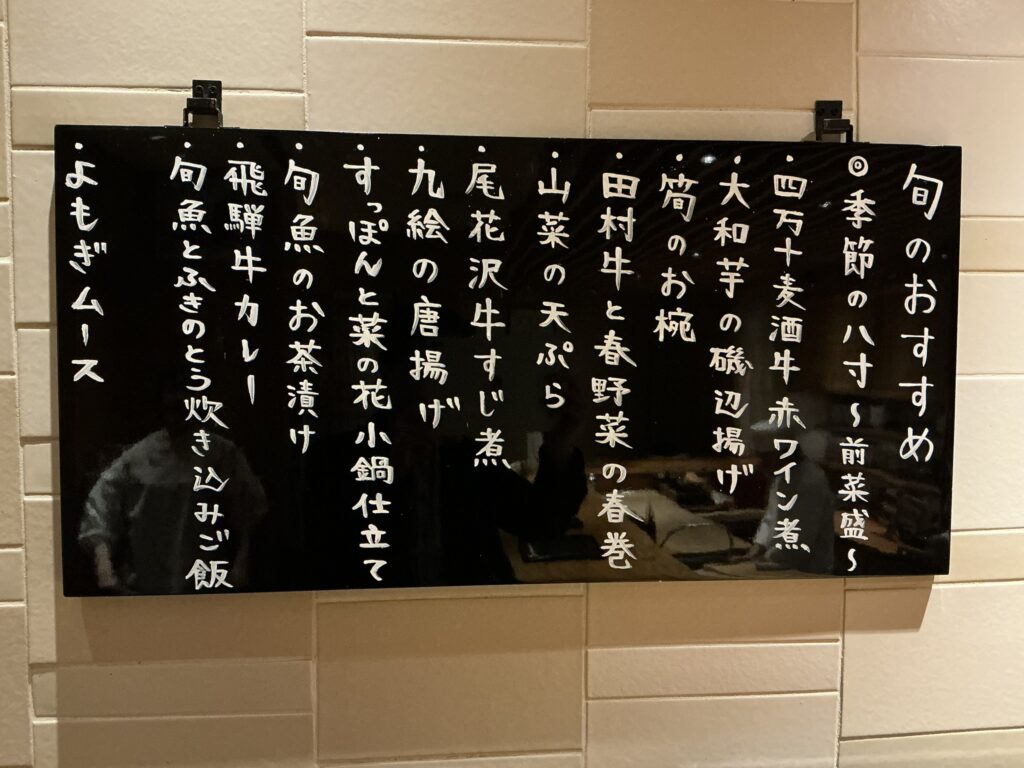 旬のおすすめ
◎季節の八寸～前菜盛～
・四万十麦酒牛赤ワイン煮
・大和芋の磯辺揚げ
・筍のお椀
・田村牛と春野菜の春巻
・山菜の天ぷら
・尾花沢牛すじ煮
・九絵の唐揚げ
・すっぽんと菜の花小鍋仕立て
・旬魚のお茶漬け
・飛騨牛カレー
・旬魚とふきのとう炊き込みご飯
・よもぎムース